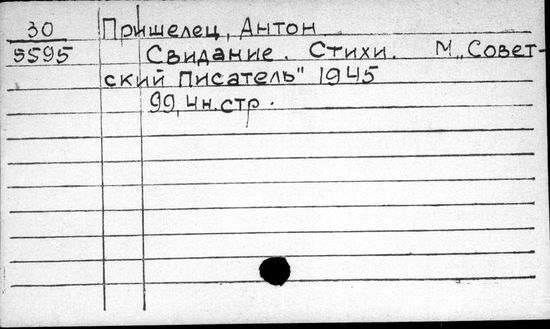 30 Пришелец, Антон
5595 Свидание. Стихи. М „Совет-
ский Писатель" 1945
99, 4н.стр.